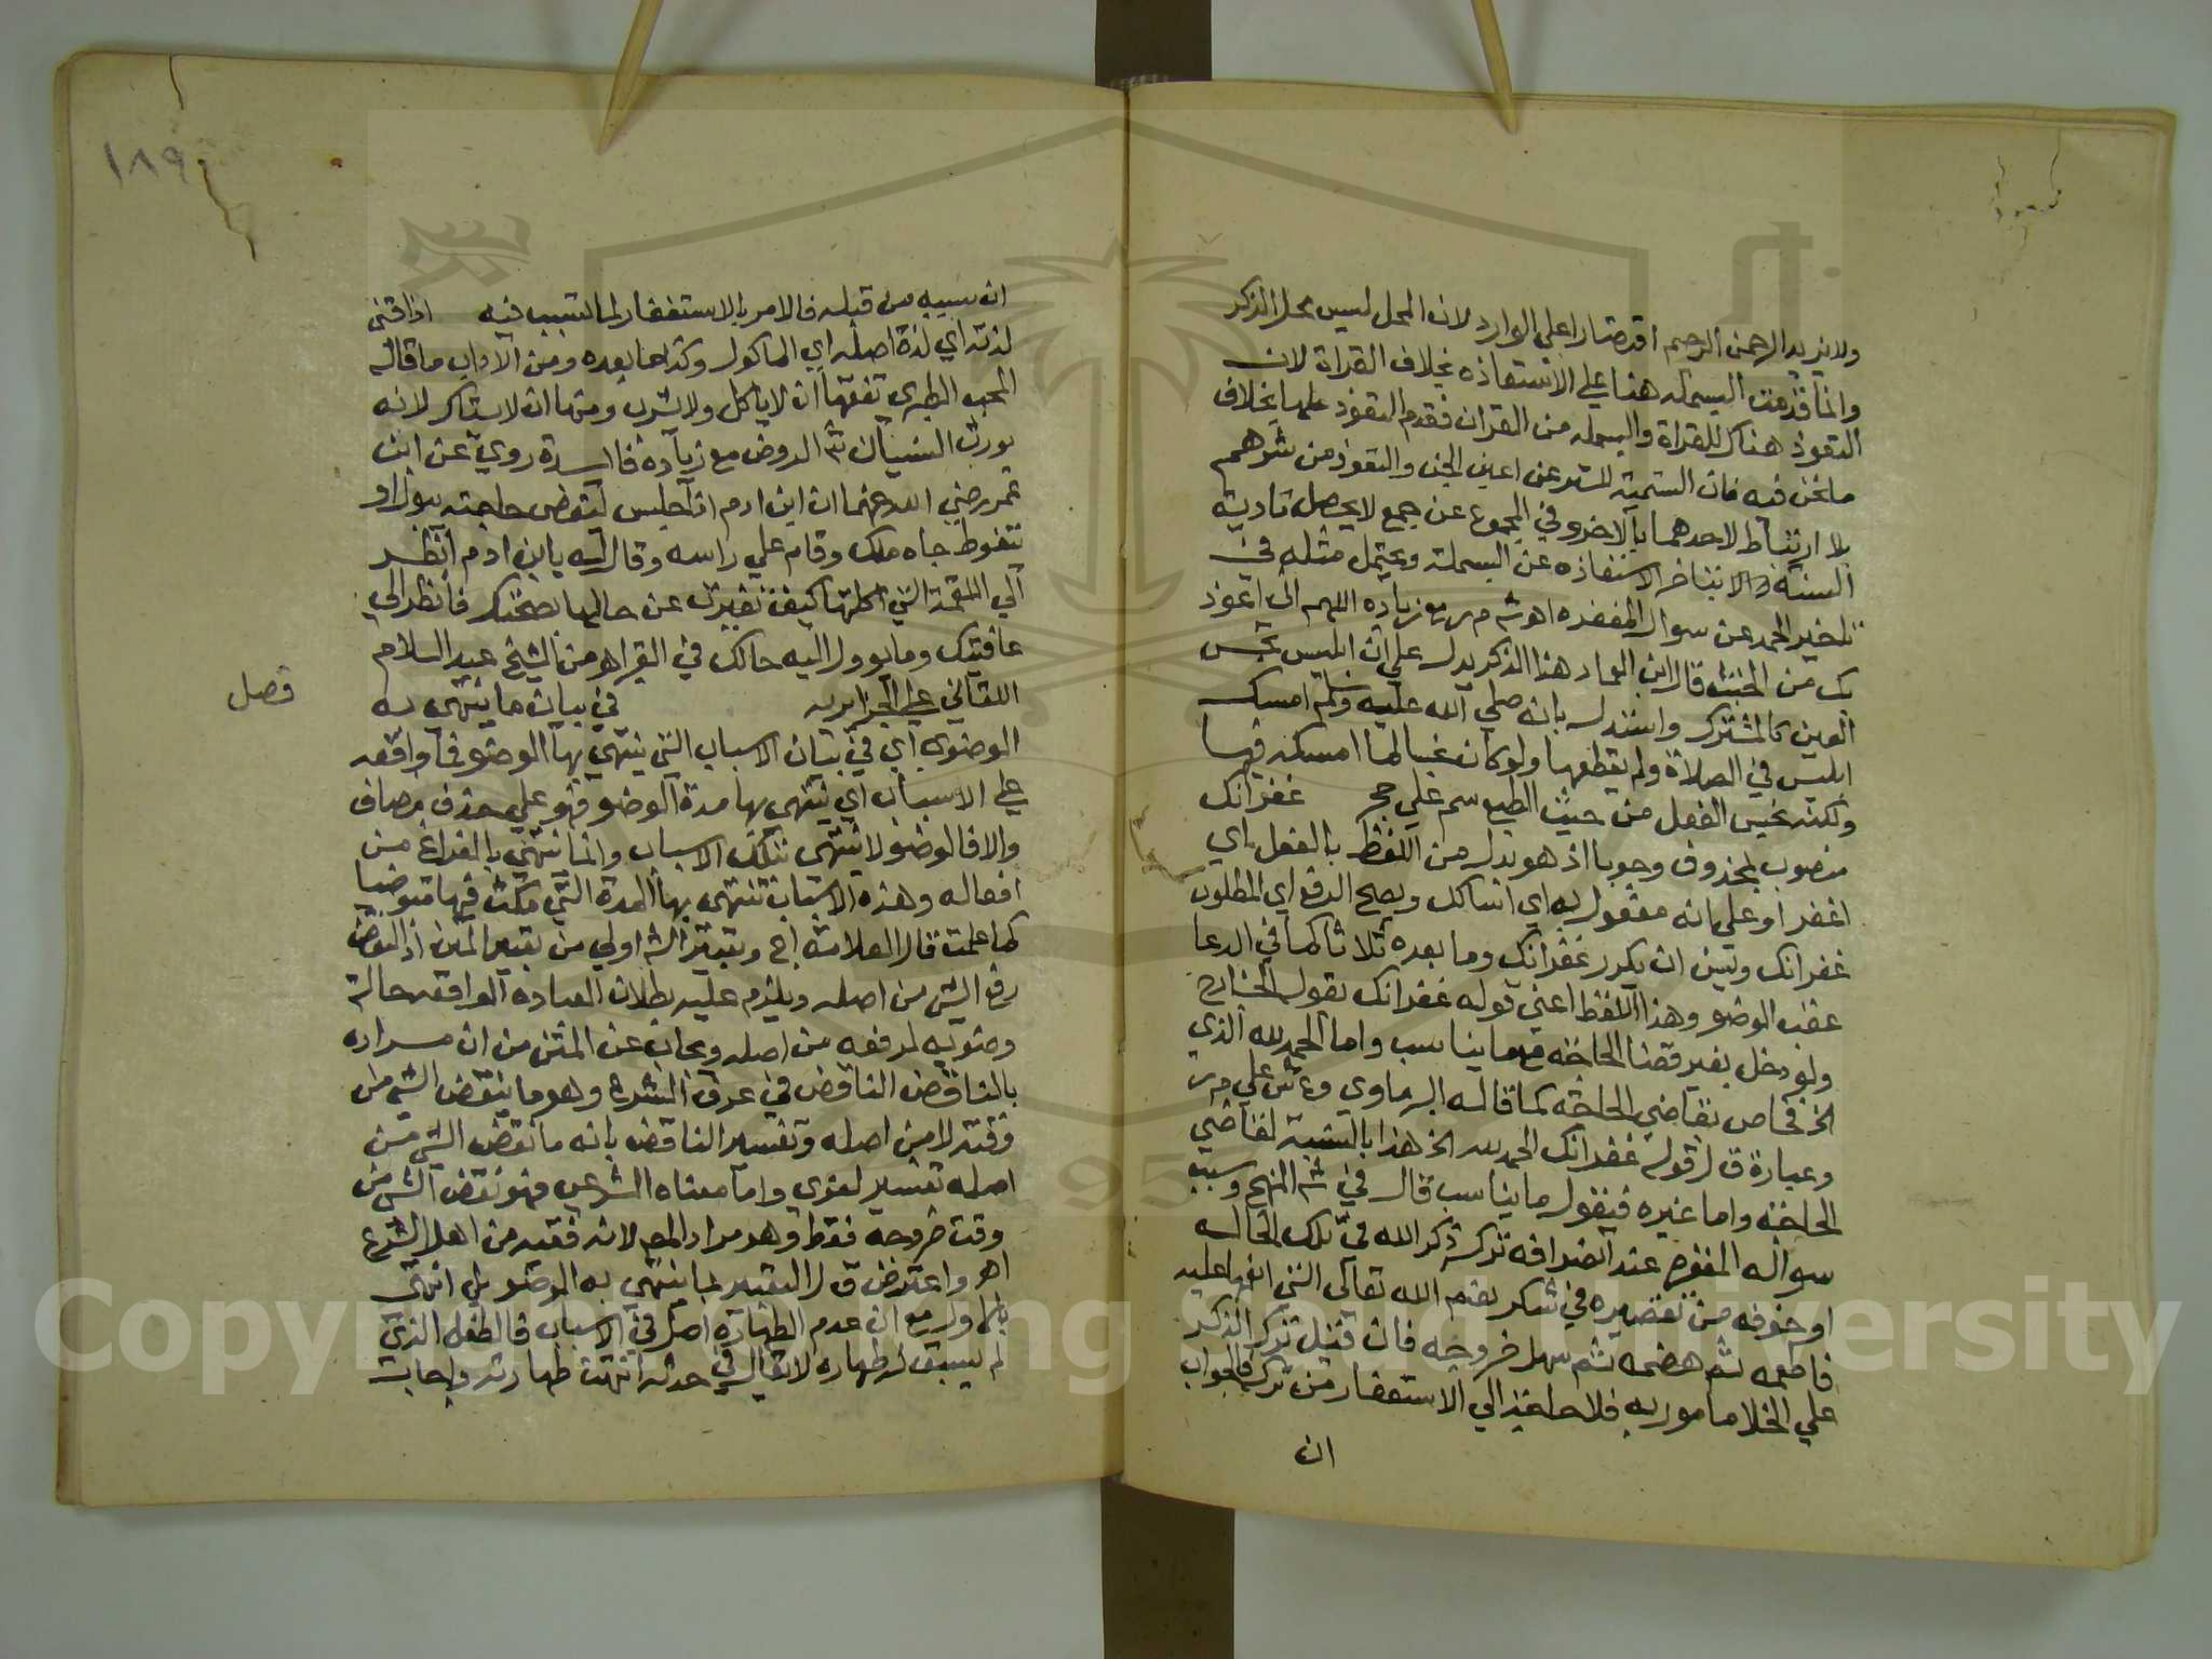 ولا يزيد الرحمن الرحيم اقتصارا علي الوارد لان المحل ليس محل الذكر
وانما قدمت البسمله هنا علي الاستعاذه بخلاف القراة لان
التعوذ هناك للقراة والبسمله من القران فقدم التعوذ عليها بخلاف
ما نحن فيه فان التسمية للستر عن اعين الجن والتعوذ من شرهم
بلا ارتباط لاحدهما بالاخر وفي المجموع عن جمع لا يحصل تادية
السنة الا بتاخر الاستعاذه عن البسملة ويحتمل مثله في
تاخير الحمد عن سوال المغفره اهـ شر م ر مع زياده اللهم اني اعوذ
بك من الخبث قال ابن العماد هذا الذكر يدل علي ان ابليس نجس
العين كالمشرك واستدل بانه صلي الله عليه وسلم امسك
ابليس في الصلاة ولم يقطعها ولو كان نجسا لما امسكه فيها
ولكنه نجس الفعل من حيث الطبع سم علي حج غفرانك
منصوب بمحذوف وجوبا اذ هو بدل من اللفظ بالفعل اي
اغفر او علي انه مفعول به اي اسالك ويصح الرفع اي المطلوب
غفرانك ويسن ان يكرر غفرانك وما بعده ثلاثا كما في الدعا
عقب الوضو وهذا اللفظ اعني قوله غفرانك يقول الخارج
ولو دخل بغير قضا الحاجه مما يناسب واما الحمد لله الذي
الخ فخاص بقاضي الحاجه كما قاله البرماوي وع ش علي م ر
وعبارة ق ل قوله غفرانك الحمد لله الخ هذا بالنسبة لقاضي
الحاجه واما غيره فيقول ما يناسب قال في شر المنهج وسبب
سواله المغفره عند انصرافه تركه ذكر الله في تلك الحاله
او خوفه من تقصيره في شكر نعم الله تعالي التي انعمها عليه
فاطعمه ثم هضمه ثم سهل خروجه فان قيل ترك الذكر
علي الخلا مامور به فلا حاجه الي الاستغفار من تركه فالجواب
ان
١٨٩
ان سببه من قبله فالامر بالاستغفار لما تسبب فيه اذاقني
لذته اي لذة اصله اي الماكول وكذا ما بعده ومن الاداب ما قاله
المحب الطبري تفقها ان لا ياكل ولا يشرب ومنها ان لا يستاك لانه
يورث النسيان شر الروض مع زيادة فايدة روي عن ابن
عمر رضي الله عنهما ان ابن ادم اذا جلس ليقضي حاجته ببول او
تغوط جاه ملك وقام علي راسه وقال له يا ابن ادم انظر
الي اللقمة التي اكلتها كيف تغيرت عن حالها بصحبتك فانظر الي
عاقبتك وما يوول اليه حالك في القبر اهـ من الشيخ عبد السلام
اللقاني علي الجزايريه في بيان ما ينتهي به
فصل
الوضو اي في بيان الاسباب التي ينتهي بها الوضو فما واقعه
علي الاسباب اي ينتهي بها مدة الوضو فهو علي حذف مضاف
والا فالوضو لا ينتهي بتلك الاسباب وانما ينتهي بالفراغ من
افعاله وهذه الاسباب تنتهي بها المدة التي مكث فيها متوضيا
كما علمت قال العلامة اج وتعبير الشر اولي من تعبير المتن اذ النقض
رفع الشي من اصله ويلزم عليه بطلان العباده الواقعه حالة
وضويه لرفعه من اصله ويجاب عن المتن من ان مراده
بالناقض الناقض في عرف الشرع وهو ما ينقض الشي من
وقته لا من اصله وتفسير الناقض بانه ما نقض الشي من
اصله تفسير لغوي واما معناه الشرعي فهو نقض الشي من
وقت خروجه فقط وهو مراد المصـ لانه فقيه من اهل الشرع
اهـ واعترض ق ل التعبير بما ينتهي به الوضو بان انتهي
بالاول مع ان عدم الطهارة اصل في الاسباب فالطفل الذي
لم يسبق له طهاره لا يقال في حدثه انتهت طهارته واجاب